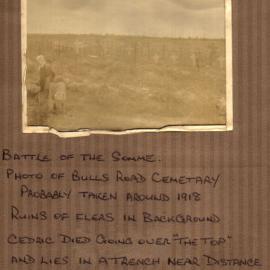 BATTLE OF THE SOMME.
PHOTO OF BULLS ROAD CEMETARY
PROBABLY TAKEN AROUND 1918
RUINS OF FLERS IN BACKGROUND
CEDRIC DIED GOING OVER "THE TOP"
AND LIES IN A TRENCH NEAR DISTANCE